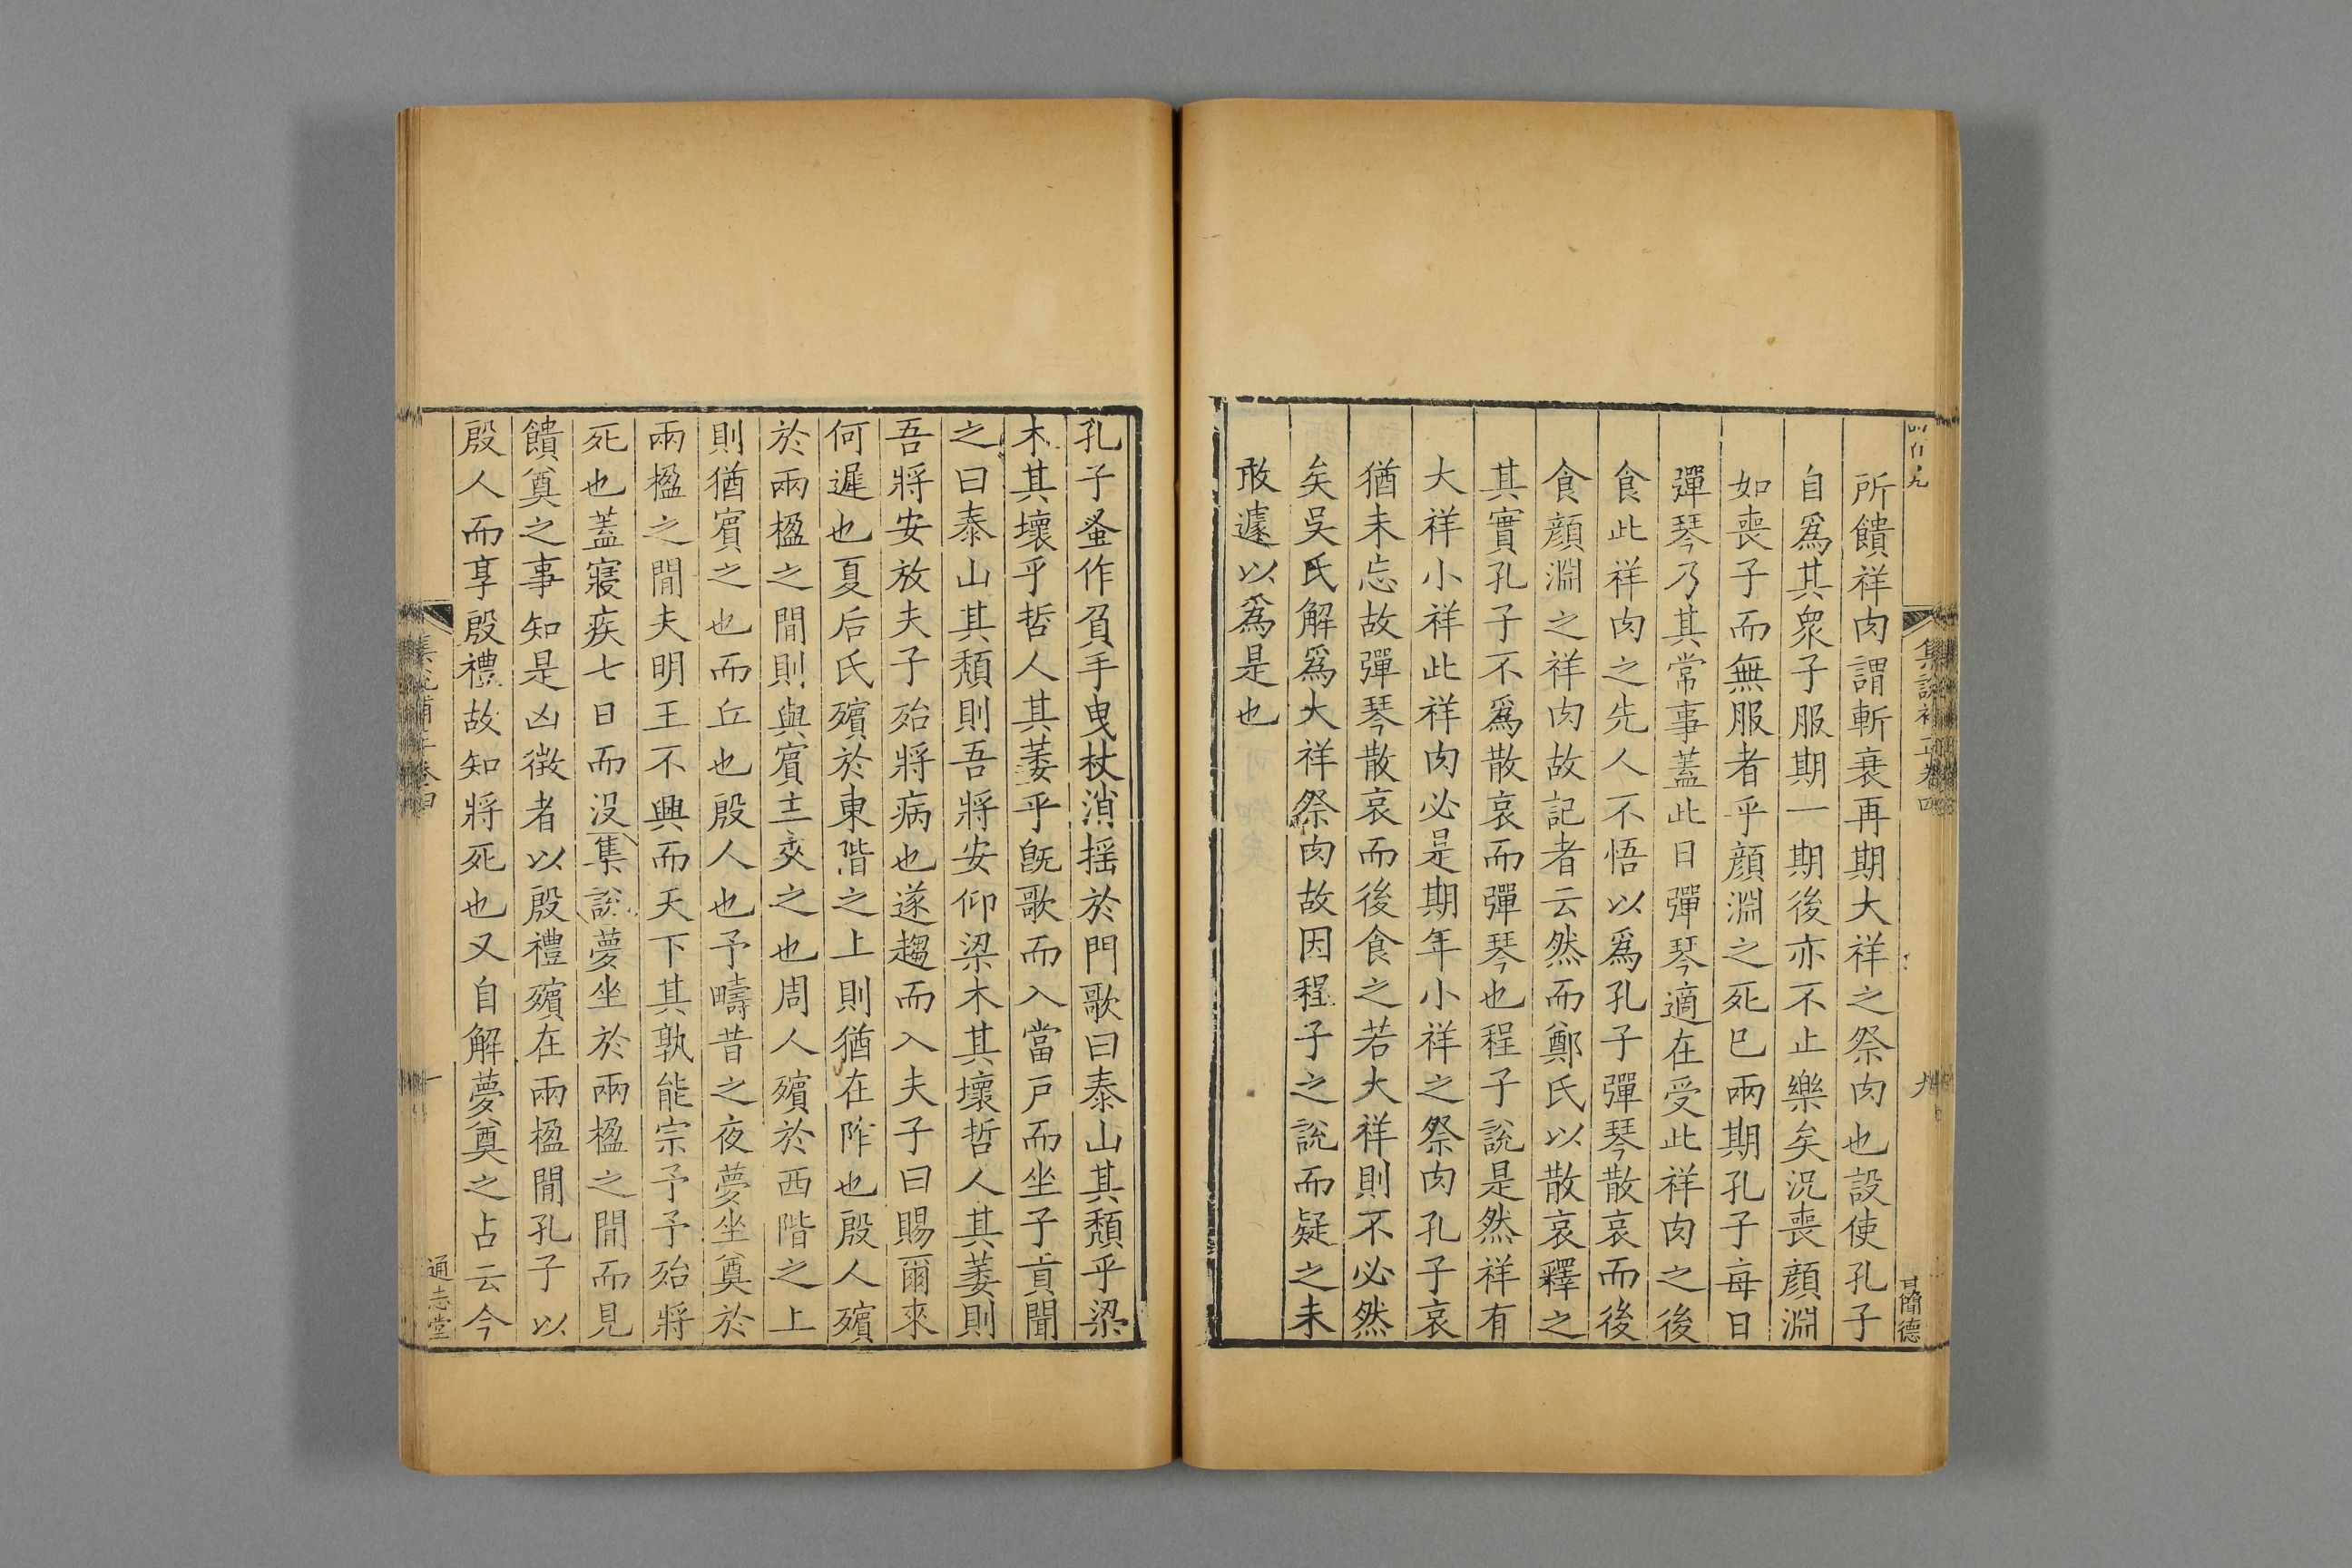 所饋祥肉謂斬衰再期大祥之祭肉也設使孔子
自爲其衆子服期一期後亦不止樂矣況喪顔淵
如喪子而無服者乎顔淵之死巳兩期孔子每日
彈琴乃其常事蓋此日彈琴適在受此祥肉之後
食此祥肉之先人不悟以爲孔子彈琴散哀而後
食顔淵之祥肉故記者云然而鄭氏以散哀釋之
其實孔子不爲散哀而彈琴也程子說是然祥有
大祥小祥此祥肉必是期年小祥之祭肉孔子哀
猶未忘故彈琴散哀而後食之若大祥則不必然
矣吳氏解爲大祥祭肉故因程子之說而疑之未
敢遽以爲是也
集說補正卷四
九
甘簡德
孔子蚤作負手曳杖消摇於門歌曰泰山其頹乎梁
木其壞乎哲人其萎乎旣歌而入當戸而坐子貢聞
之曰泰山其頹則吾將安仰梁木其壞哲人其萎則
吾將安放夫子殆將病也遂趨而入夫子曰賜爾來
何遲也夏后氏殯於東階之上則猶在阼也殷人殯
於兩楹之閒則與賓主夾之也周人殯於西階之上
則猶賓之也而丘也殷人也予疇昔之夜夢坐奠於
兩楹之閒夫明王不興而天下其孰能宗予予殆將
死也蓋寢疾七日而没集說夢坐於兩楹之閒而見
饋奠之事知是凶徵者以殷禮殯在兩楹閒孔子以
殷人而享殷禮故知將死也又自解夢奠之占云今
集說補正卷四
十
通志堂